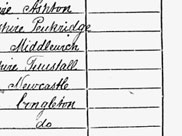 ire Ashton
shire Penkridge
Middlewich
ire Tunstall
Newcastle
Congleton
do